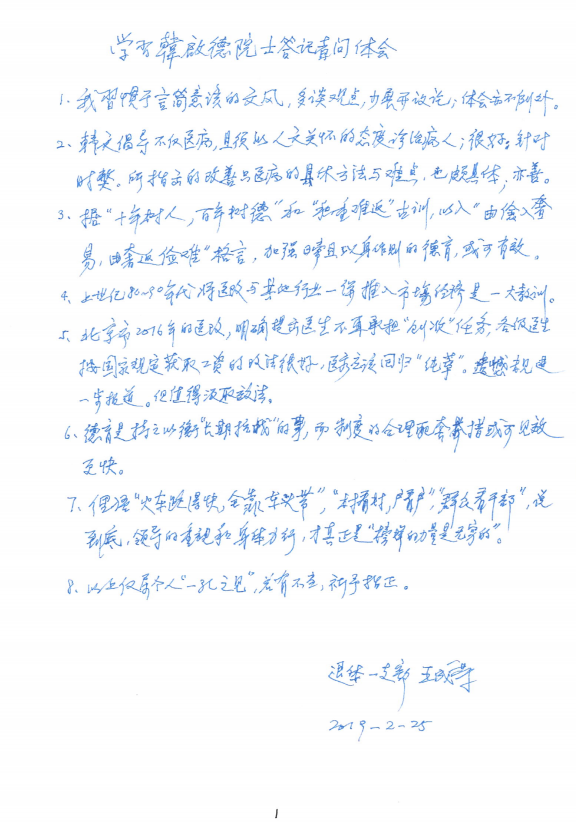 学习韩启德院士答记者问体会
1、我习惯于言简意该的文风，多谈观点，少展开议论；体会亦不例外。
2、韩文倡导不仅医病，且须以人文关怀的态度诊治病人；很好。针对
时弊。所指出的改善与医病的具体方法与难点，也颇具体，亦善。
3、据“十年树人，百年树德”和“积重难返”古训，以入“由俭入奢
易，由奢返俭难”格言，加强日常且以身作则的德育，或可有效。
4、上世纪80-90年代将医改与其他行业一样推入市场经济是一大教训。
5、北京市2016年的医改，明确提出医生不再承担“创收”任务，各级医生
按国家规定获取工资的改法很好，医疗应该回归“纯革”。遗憾未见进
一步报道。但值得汲取改法。
6、德育是持之以衡“长期抗战”的事，而制度的合理配套举措或可见效
更快。
7、俚语“火车跑得快，全靠车头带”，“村看村，户看户”，“群众看干部”，说
到底，领导的重视和身体力行，才真正是“榜样的力量是无穷的”。
8、以上仅属个人“一孔之见”，若有不当，祈予指正。
退休一支部 王
2019-2-25
1